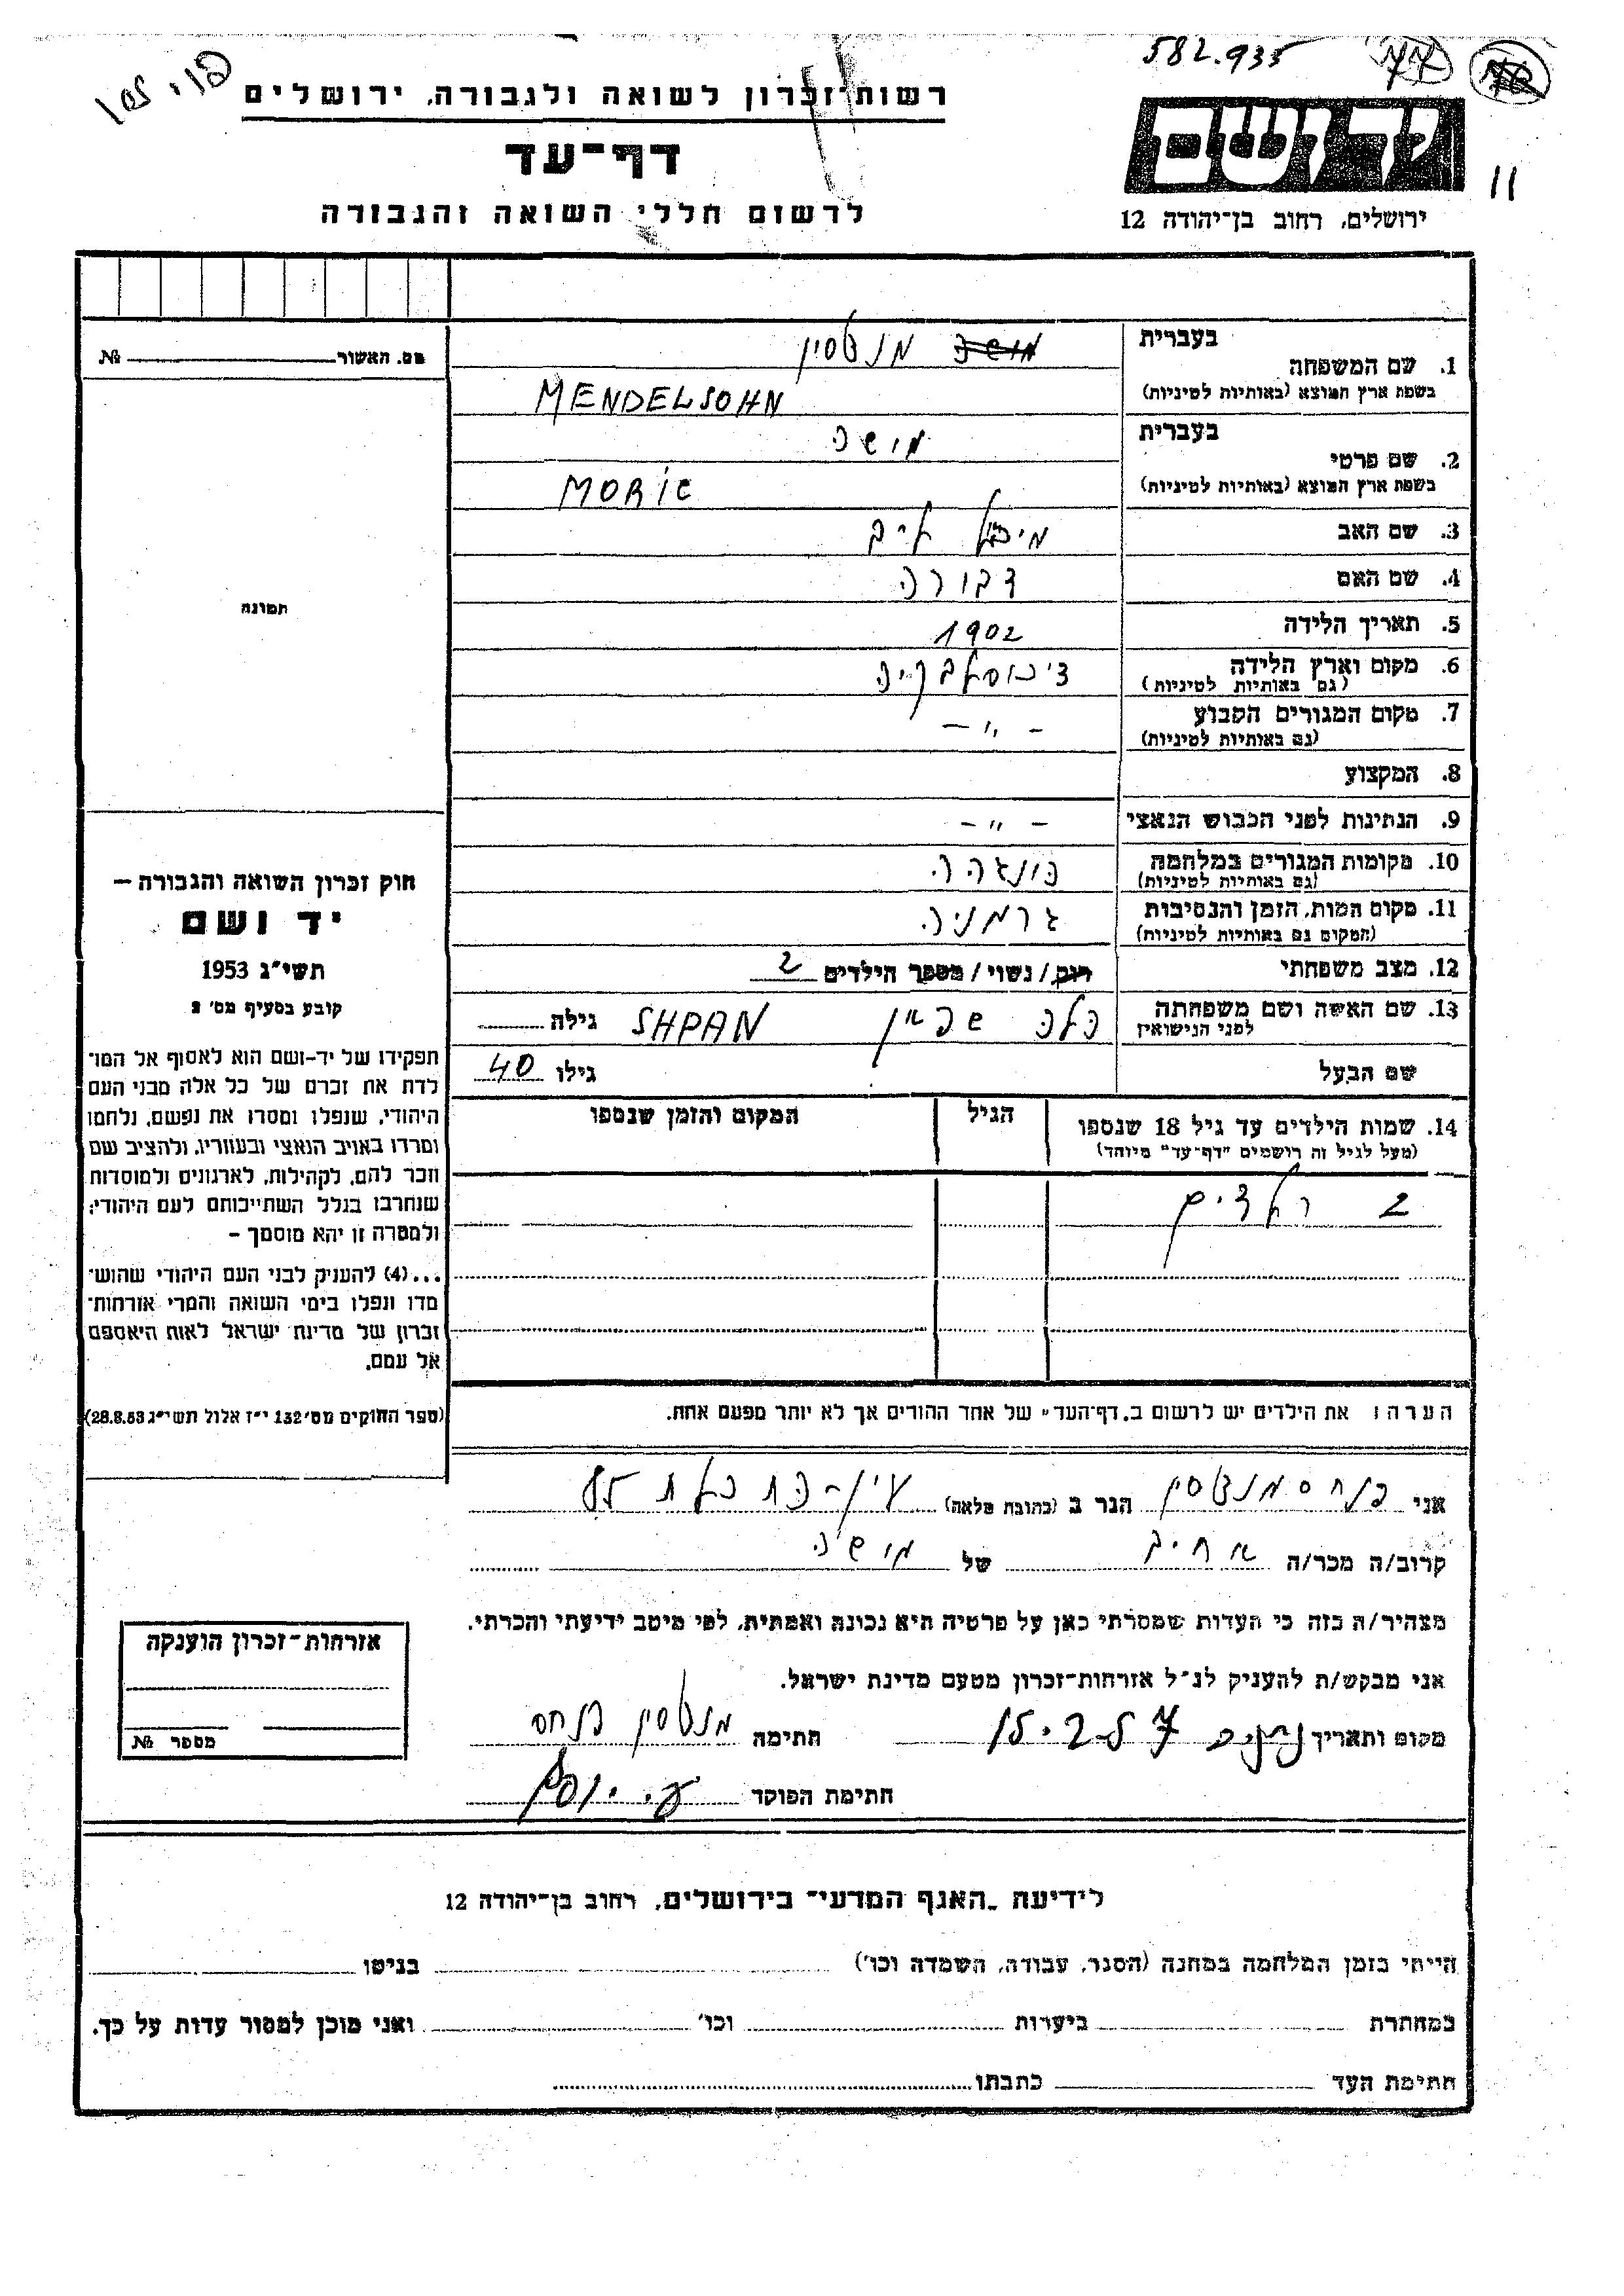 582.935
77
11
רשות-זכרון לשואה ולגבורה, ירושלים
יד ושם
דף-עד
לרשום חללי השואה והגבורה
ירושלים, רחוב בן-יהודה 12
מס. האשור № 
בעברית
1. שם המשפחה
בשפת ארץ המוצא (באותיות לטיניות)
MENDELSOHN
בעברית
משה
2. שם פרטי
בשפת ארץ המוצא (באותיות לטיניות)
MORIC
3. שם האב
4. שם האם דבורה
5. תאריך הלידה 1902
6. מקום וארץ הלידה
(גם באותיות לטיניות)
7. מקום המגורים הקבוע - " -
(גם באותיות לטיניות)
8. המקצוע
9. הנתינות לפני הכבוש הנאצי - " -
10. מקומות המגורים במלחמה
(גם באותיות לטיניות)
11. מקום המות, הזמן והנסיבות גרמניה
(המקום גם באותיות לטיניות)
12. מצב משפחתי רוק/נשוי/מספר הילדים 2
13. שם האשה ושם משפחתה SHPAN גילה
לפני הנישואין
שם הבעל גילו 40
14. שמות הילדים עד גיל 18 שנספו הגיל המקום והזמן שנספו
(מעל לגיל זה רושמים "דף-עד" מיוחד)
2 ילדים
תמונה
חוק זכרון השואה והגבורה –
יד ושם
תשי"ג 1953
קובע בסעיף מס' 2
תפקידו של יד-ושם הוא לאסוף אל המו־
לדת את זכרם של כל אלה מבני העם
היהודי, שנפלו ומסרו את נפשם, נלחמו
ומרדו באויב הנאצי ובעוזריו, ולהציב שם
וזכר להם, לקהילות, לארגונים ולמוסדות
שנחרבו בגלל השתייכותם לעם היהודי;
ולמטרה זו יהא מוסמך –
...(4) להעניק לבני העם היהודי שהוש־
מדו ונפלו בימי השואה והמרי אזרחות־
זכרון של מדינת ישראל לאות היאספם
אל עמם.
(ספר החוקים מס' 132 י"ז אלול תשי"ג 28.8.53)
הערה: את הילדים יש לרשום ב"דף-העד" של אחד ההורים אך לא יותר מפעם אחת.
אני פנחס מנדלסון הגר ב (כתובת מלאה)
קרוב/ה מכר/ה אחיו של משה
מצהיר/ה בזה כי העדות שמסרתי כאן על פרטיה היא נכונה ואמתית, לפי מיטב ידיעתי והכרתי.
אני מבקש/ת להעניק לנ"ל אזרחות-זכרון מטעם מדינת ישראל.
מקום ותאריך 15.2.57 חתימה מנדלסון פנחס
חתימת הפוקד
אזרחות-זכרון הוענקה
מספר №
לידיעת "האגף המדעי" בירושלים, רחוב בן-יהודה 12
הייתי בזמן המלחמה במחנה (הסגר, עבודה, השמדה וכו') בגיטו
במחתרת ביערות וכו' ואני מוכן למסור עדות על כך.
חתימת העד כתבתו